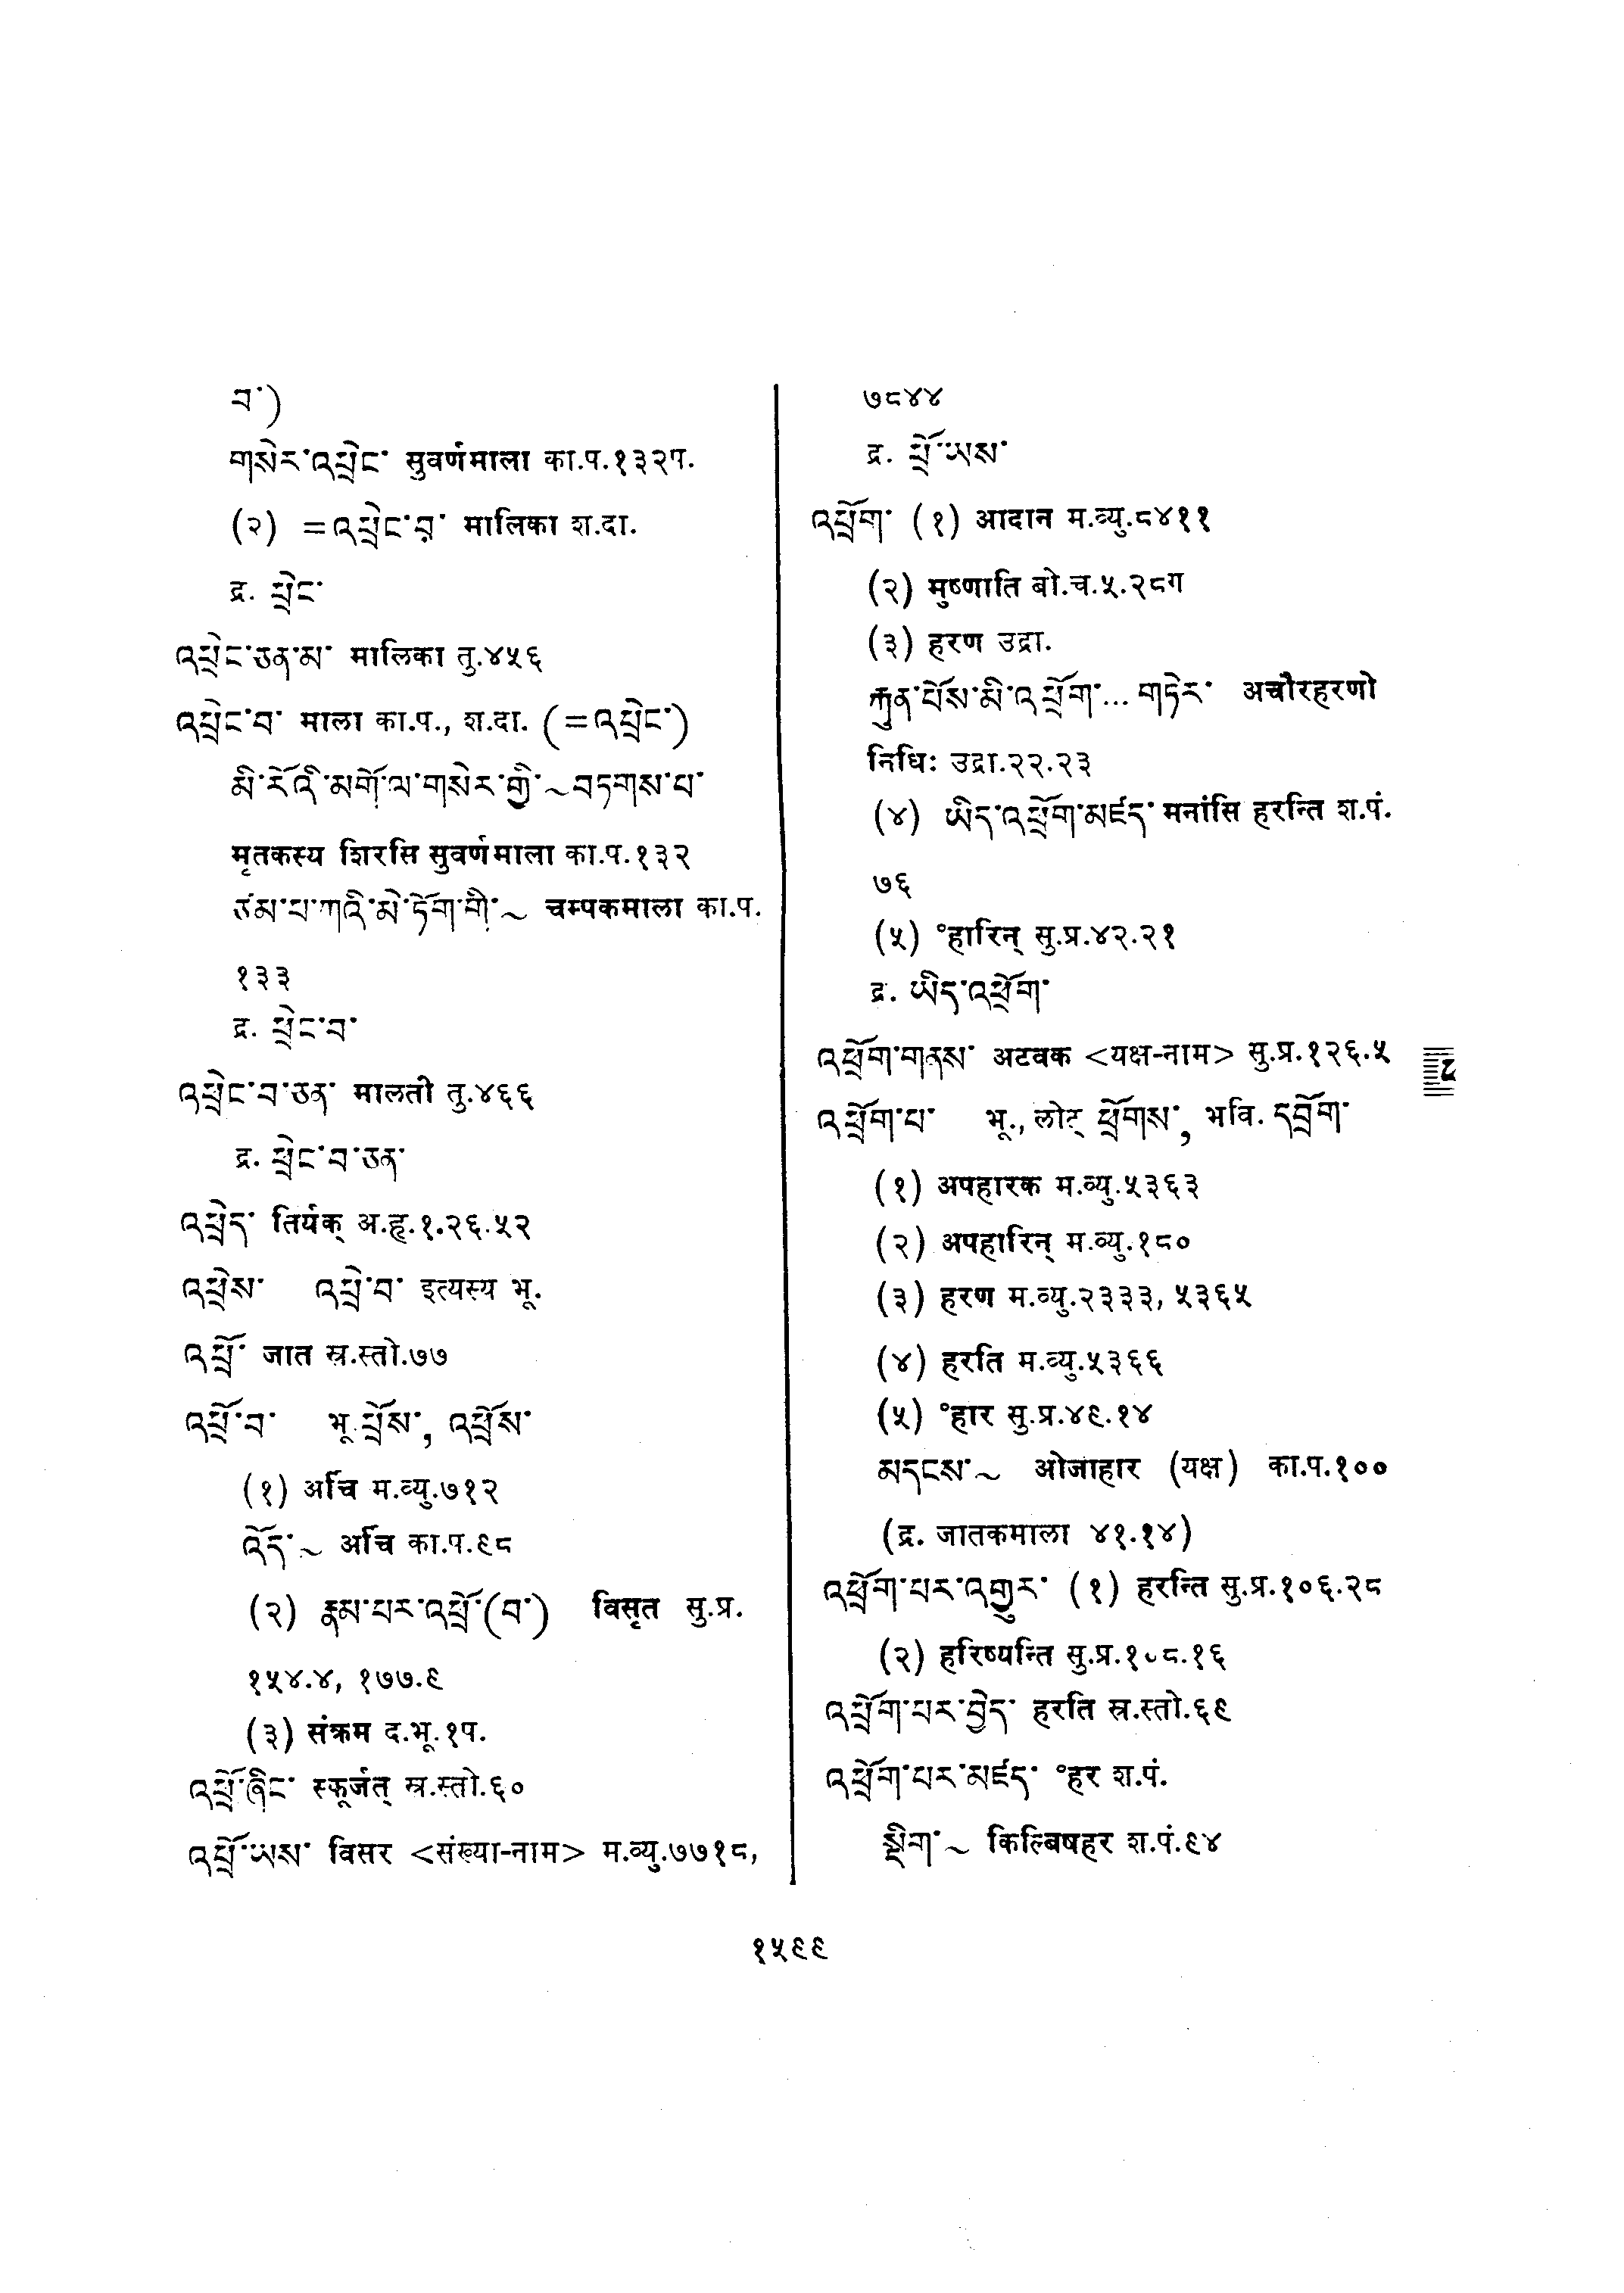 བ་)
གསེར་འཕྲེང་ सुवर्णमाला का.प.१३२प.
(२) =འཕྲེང་བ་ मालिका श.दा.
द्र. ཕྲེང་
འཕྲེང་ཅན་མ་ मालिका तु.४५६
འཕྲེང་བ་ माला का.प., श.दा. (=འཕྲེང་)
མི་རོའི་མགོ་ལ་གསེར་གྱི་~བཏགས་པ་
मृतकस्य शिरसि सुवर्णमाला का.प.१३२
ཙམ་པ་ཀའི་མེ་ཏོག་གི་~ चम्पकमाला का.प.
१३३
द्र. ཕྲེང་བ་
འཕྲེང་བ་ཅན་ मालती तु.४६६
द्र. ཕྲེང་བ་ཅན་
འཕྲེད་ तिर्यक् अ.हृ.१.२६.५२
འཕྲེས་ འཕྲེ་བ་ इत्यस्य भू.
འཕྲོ་ जात स्र.स्तो.७७
འཕྲོ་བ་ भू. ཕྲོས་, འཕྲོས་
(१) अर्चि म.व्यु.७१२
འོད་~ अर्चि का.प.९८
(२) རྣམ་པར་འཕྲོ་(བ་) विसृत सु.प्र.
१५४.४, १७७.९
(३) संक्रम द.भू.१प.
འཕྲོ་ཞིང་ स्फूर्जत् स्र.स्तो.६०
འཕྲོ་ཡས་ विसर <संख्या-नाम> म.व्यु.७७१८,
७८४४
द्र. ཕྲོ་ཡས་
འཕྲོག་ (१) आदान म.व्यु.८४११
(२) मुष्णाति बो.च.५.२८ग
(३) हरण उद्रा.
རྐུན་པོས་མི་འཕྲོག་... གཏེར་ अचौरहरणो
निधिः उद्रा.२२.२३
(४) ཡིད་འཕྲོག་མཛད་ मनांसि हरन्ति श.पं.
७६
(५) °हारिन् सु.प्र.४२.२१
द्र. ཡིད་འཕྲོག་
འཕྲོག་གནས་ अटवक <यक्ष-नाम> सु.प्र.१२६.५
འཕྲོག་པ་ भू., लोट् ཕྲོགས་, भवि. དབྲོག་
(१) अपहारक म.व्यु.५३६३
(२) अपहारिन् म.व्यु.१८०
(३) हरण म.व्यु.२३३३, ५३६५
(४) हरति म.व्यु.५३६६
(५) °हार सु.प्र.४९.१४
མདངས་~ ओजाहार (यक्ष) का.प.१००
(द्र. जातकमाला ४१.१४)
འཕྲོག་པར་འགྱུར་ (१) हरन्ति सु.प्र.१०६.२८
(२) हरिष्यन्ति सु.प्र.१०८.१६
འཕྲོག་པར་བྱེད་ हरति स्र.स्तो.६९
འཕྲོག་པར་མཛད་ °हर श.पं.
སྡིག་~ किल्बिषहर श.पं.९४
१५९९